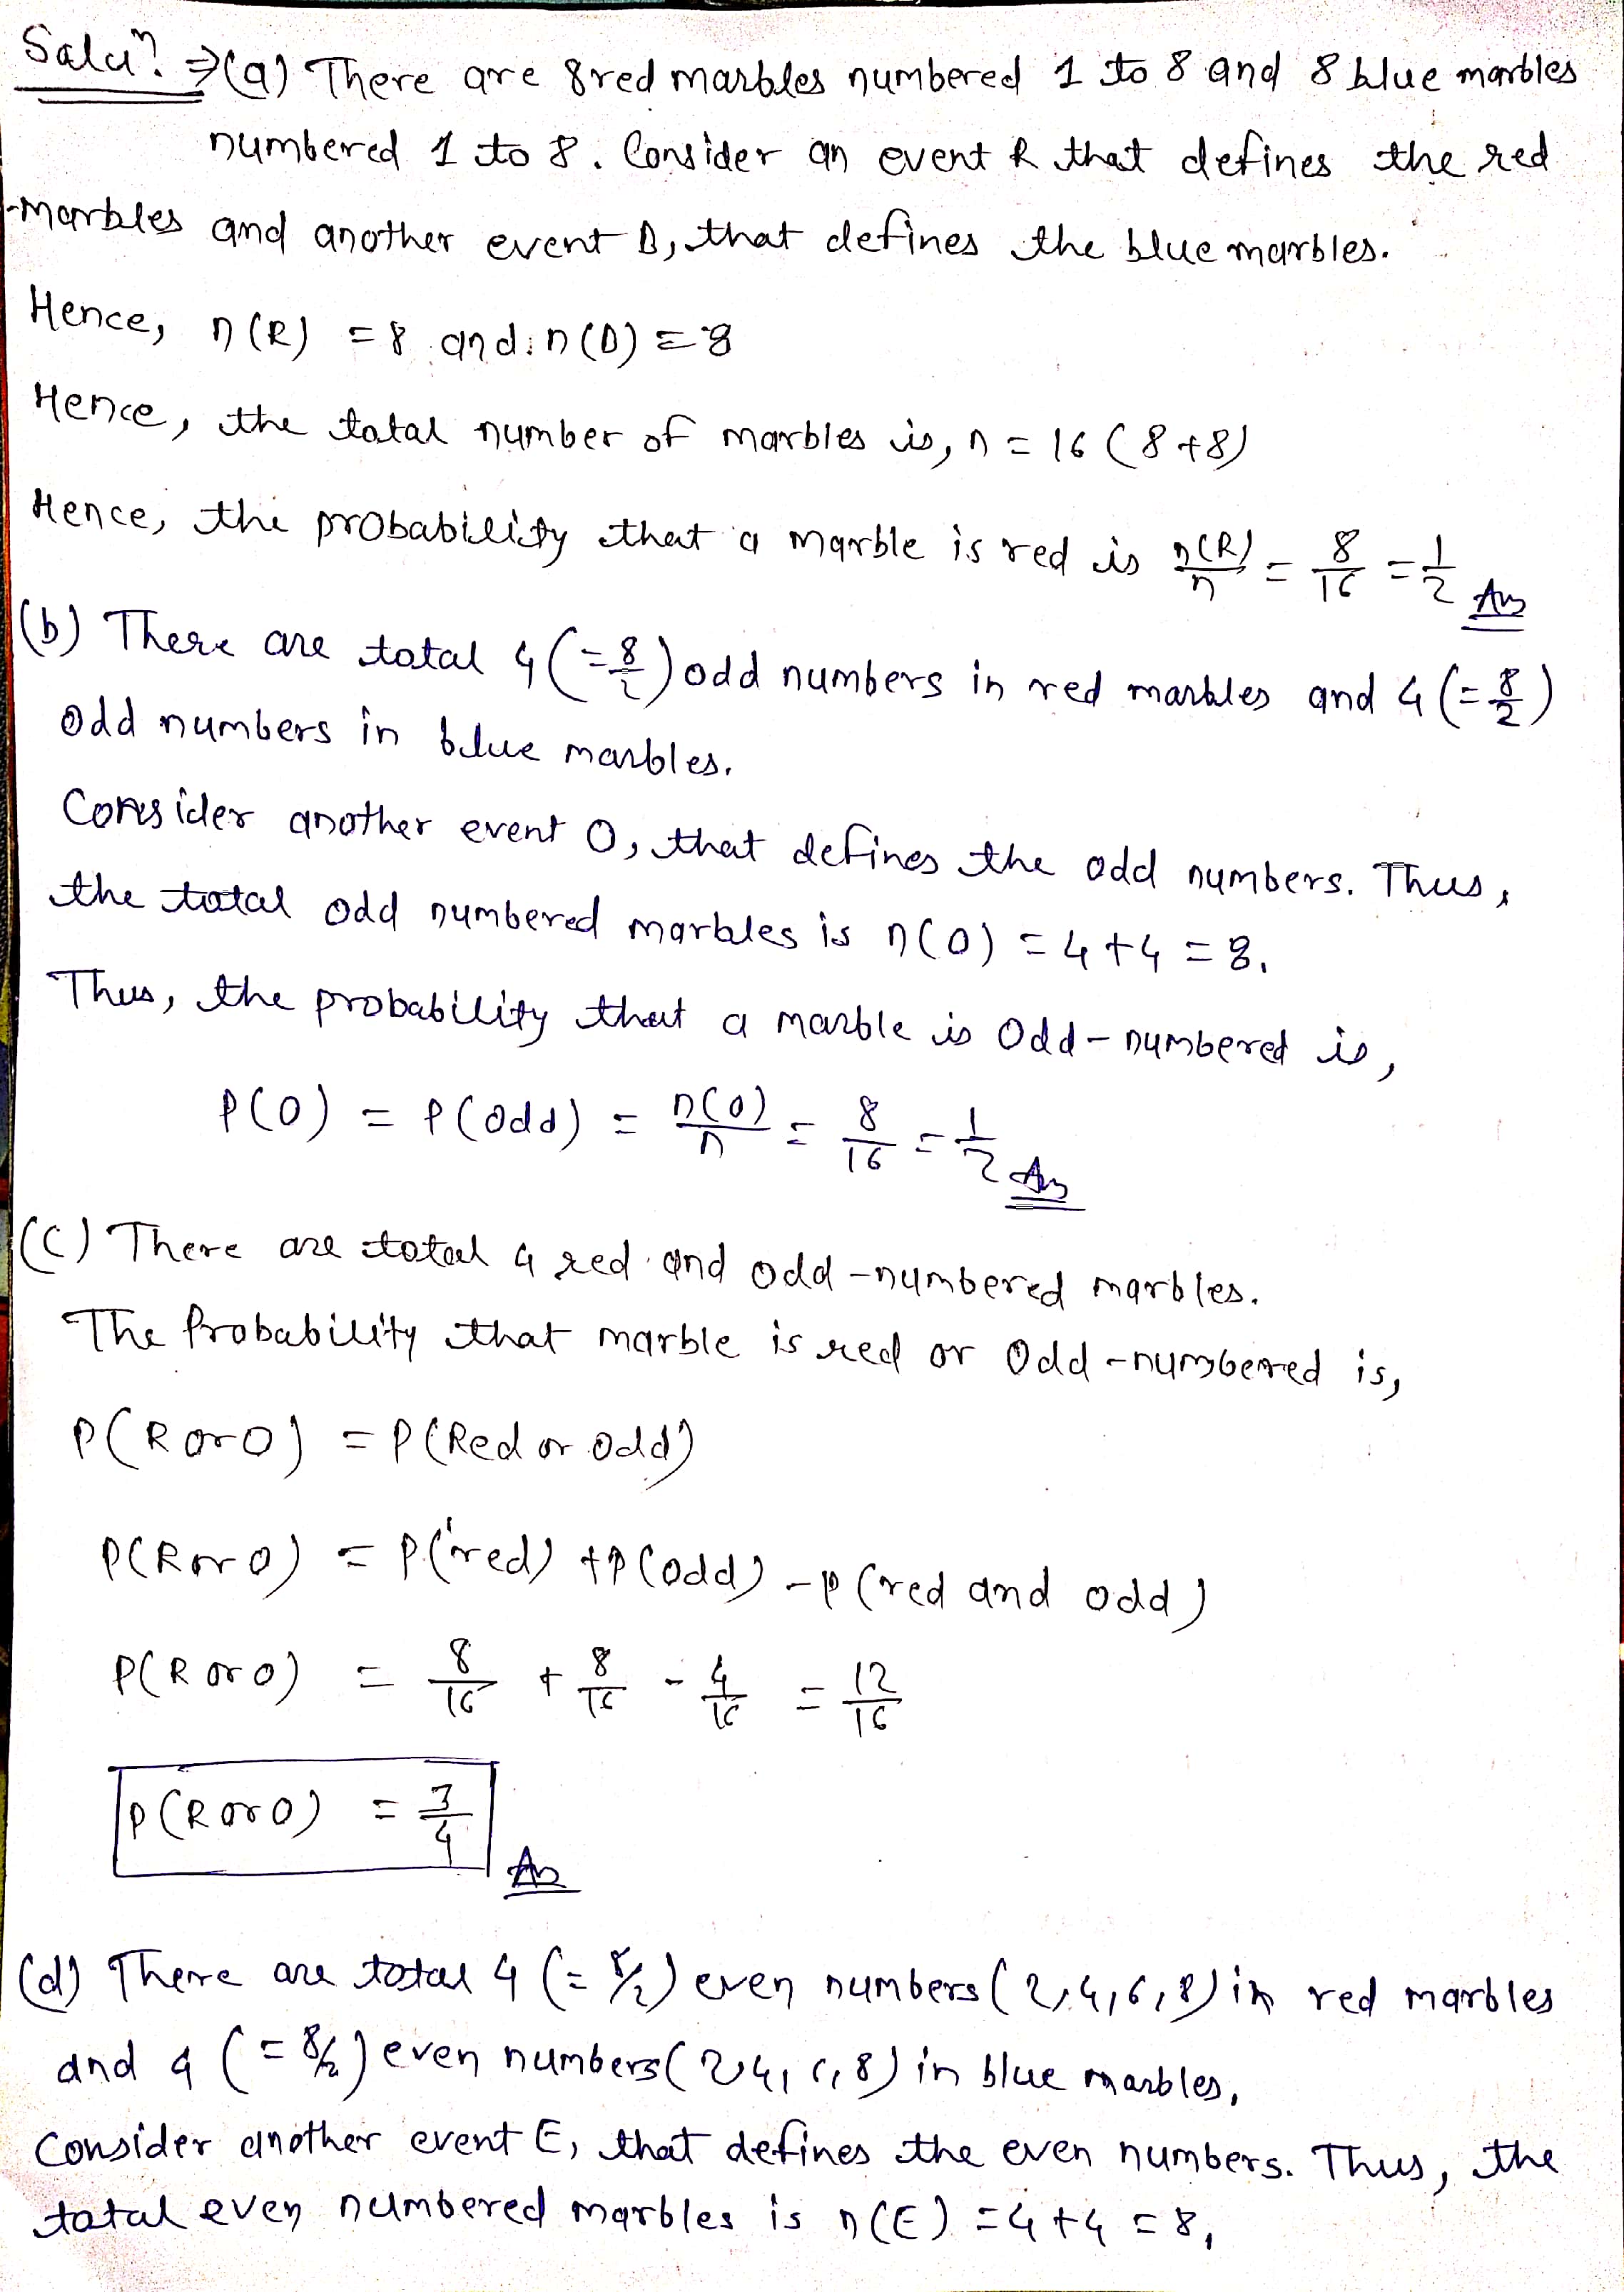 Soluⁿ. ⇒(a) There are 8 red marbles numbered 1 to 8 and 8 blue marbles
numbered 1 to 8. Consider an event R that defines the red
marbles and another event B, that defines the blue marbles.
Hence, n(R) = 8 and n(B) = 8
Hence, the total number of marbles is, n = 16 (8+8)
Hence, the probability that a marble is red is n(R)/n = 8/16 = 1/2 Ans
(b) There are total 4 (=8/2) odd numbers in red marbles and 4 (=8/2)
odd numbers in blue marbles.
Consider another event O, that defines the odd numbers. Thus,
the total odd numbered marbles is n(O) = 4+4 = 8.
Thus, the probability that a marble is Odd-numbered is,
P(O) = P(Odd) = n(O)/n = 8/16 = 1/2 Ans
(C) There are total 4 red and odd-numbered marbles.
The Probability that marble is red or Odd-numbered is,
P(R or O) = P(Red or Odd)
P(R or O) = P(red) + P(odd) - P(red and odd)
P(R or O) = 8/16 + 8/16 - 4/16 = 12/16
P(R or O) = 3/4
Ans
(d) There are total 4 (= 8/2) even numbers (2,4,6,8) in red marbles
and 4 (= 8/2) even numbers (2,4,6,8) in blue marbles,
Consider another event E, that defines the even numbers. Thus, the
total even numbered marbles is n(E) = 4+4 = 8,